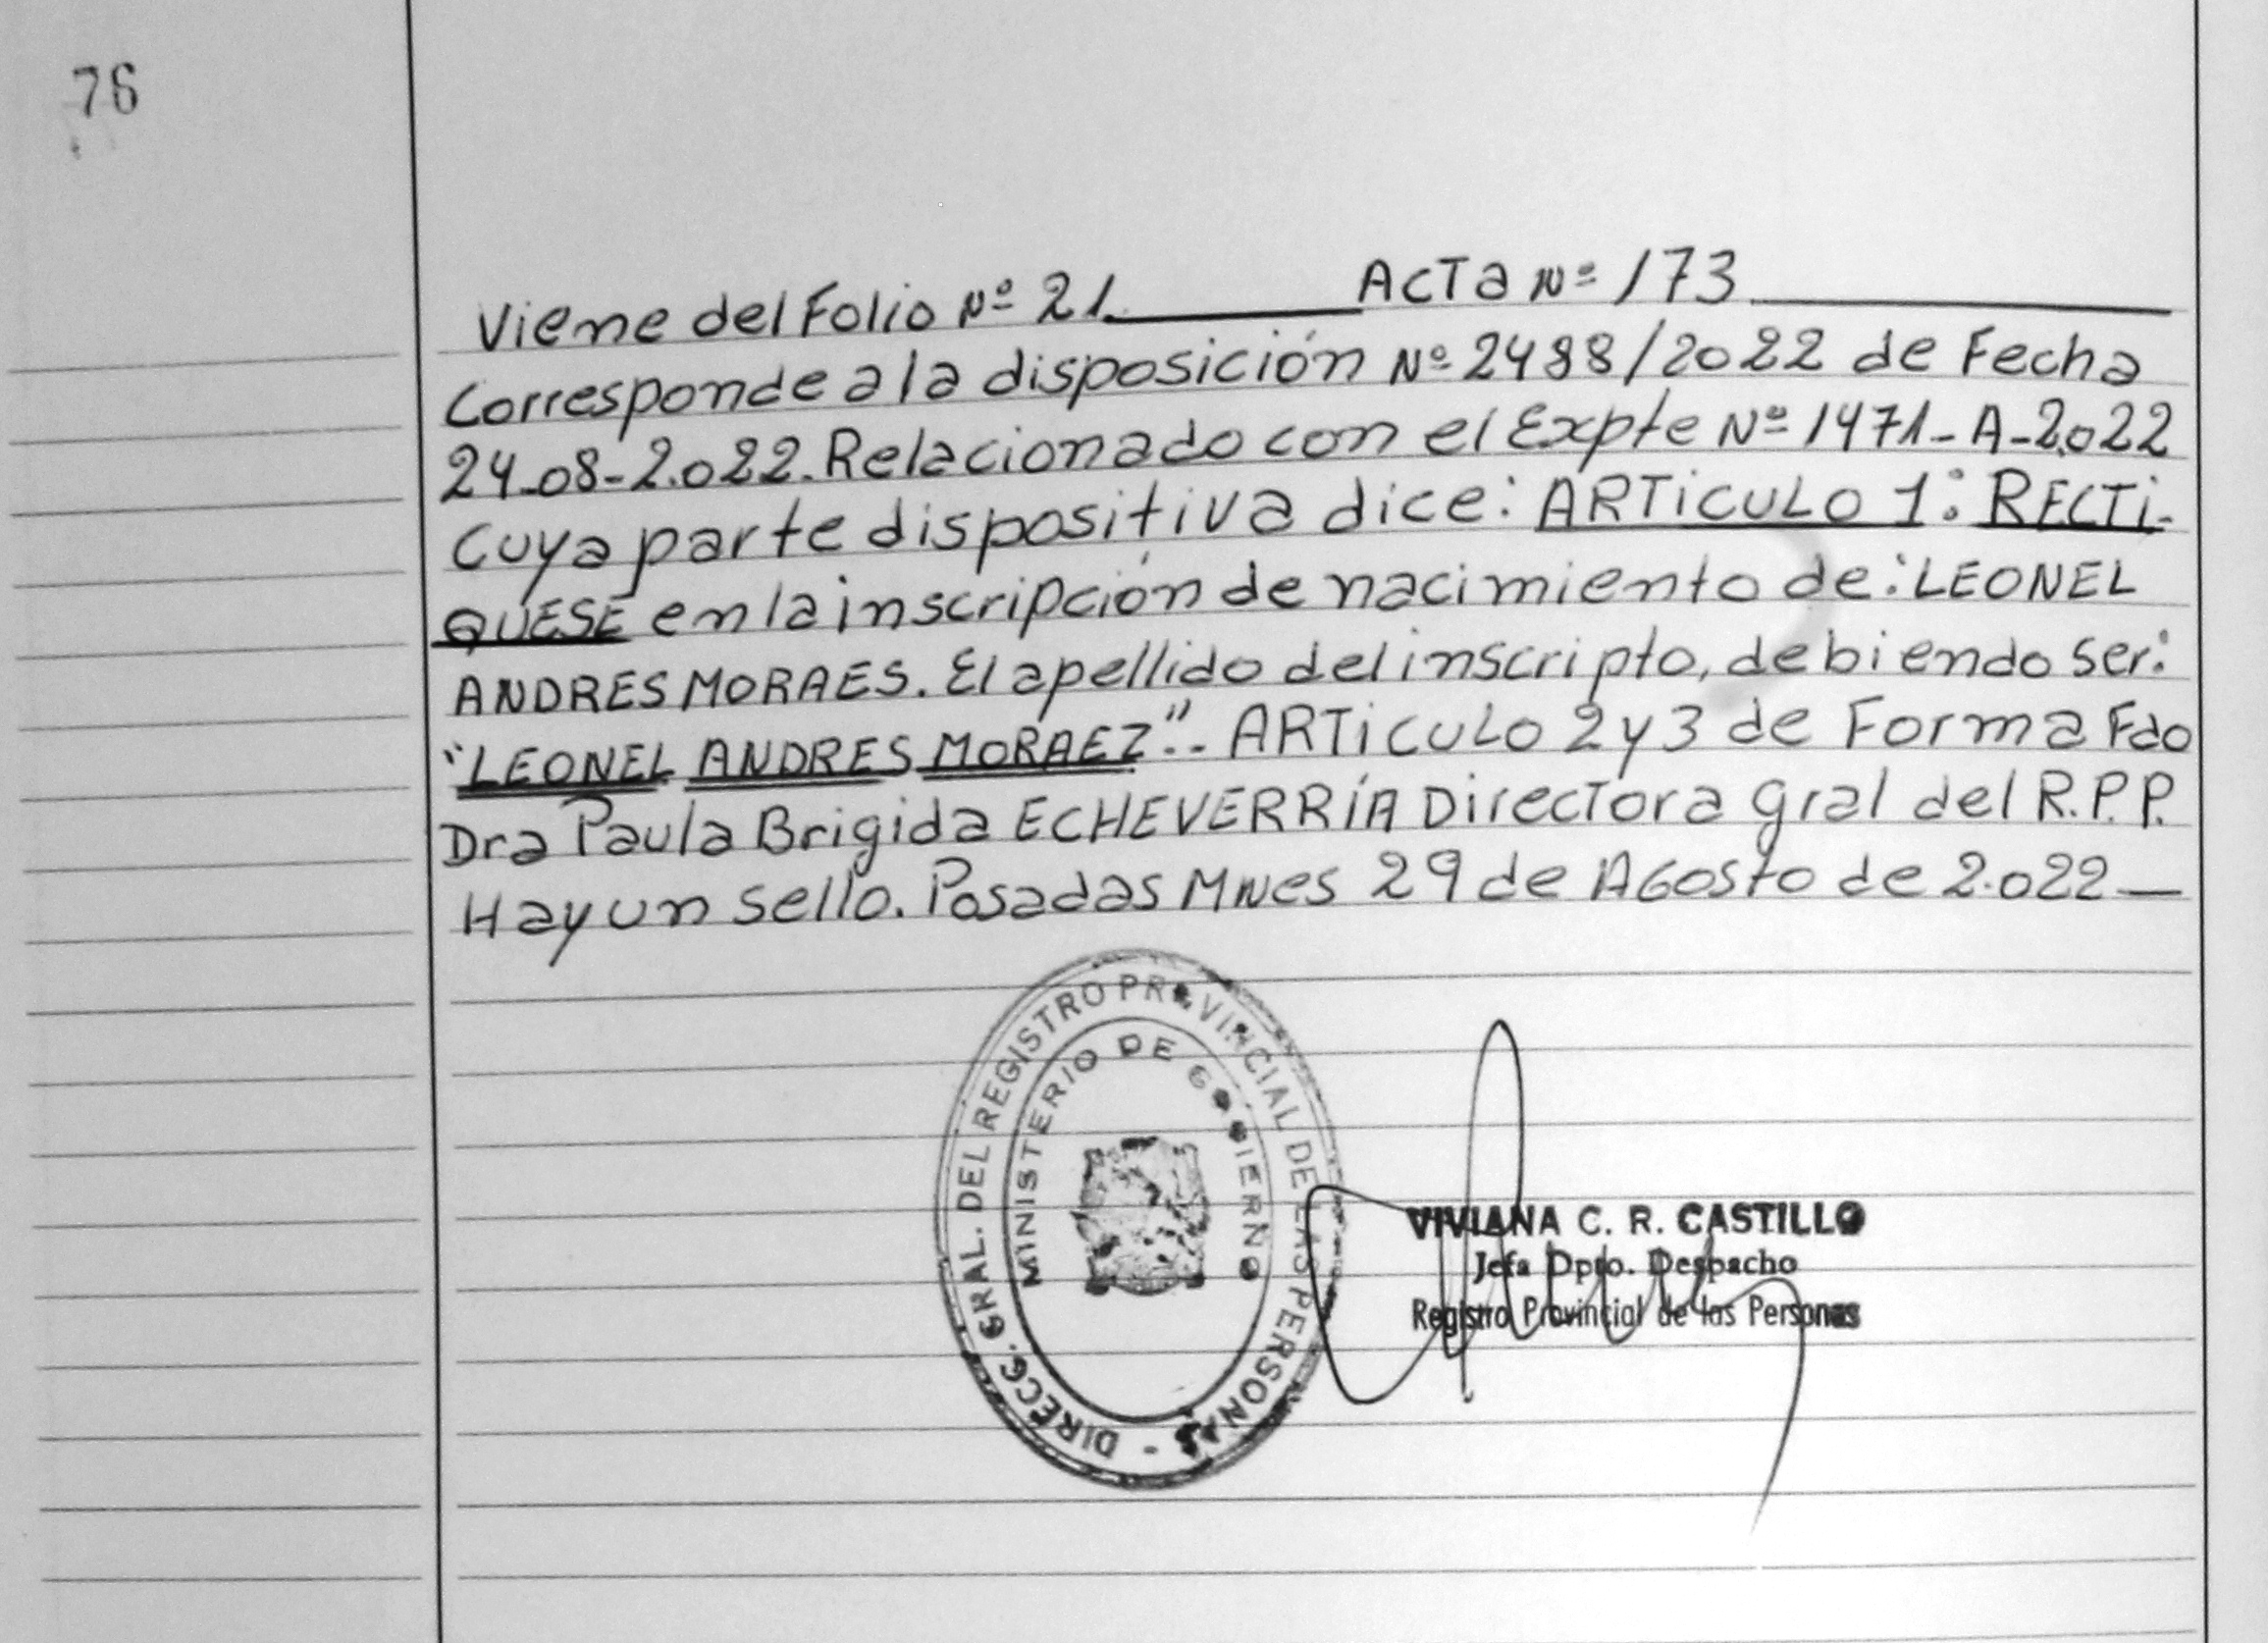 76
Viene del Folio Nº 21. ACTa Nº 173
Corresponde a la disposición Nº 2488/2022 de Fecha
24-08-2.022. Relacionado con el Expte Nº 1471-A-2.022
Cuya parte dispositiva dice: ARTiCULO 1: RECTi-
QUESE en la inscripción de nacimiento de: LEONEL
ANDRES MORAES. El apellido del inscripto, debiendo ser:
"LEONEL ANDRES MORAEZ". ARTiCULO 2 y 3 de Forma Fdo
Dra Paula Brigida ECHEVERRÍA Directora gral del R.P.P.
Hay un sello. Posadas Mnes 29 de AGosto de 2.022
DIRECC. GRAL. DEL REGISTRO PROVINCIAL DE LAS PERSONAS -
MINISTERIO DE GOBIERNO
VIVIANA C. R. CASTILLO
Jefa Dpto. Despacho
Registro Provincial de las Personas